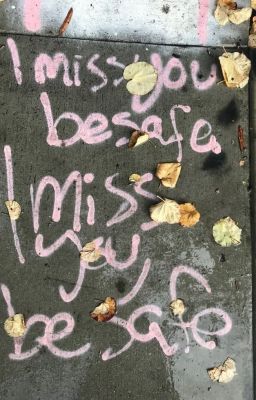 I miss you
be safe.
I miss
you
be safe